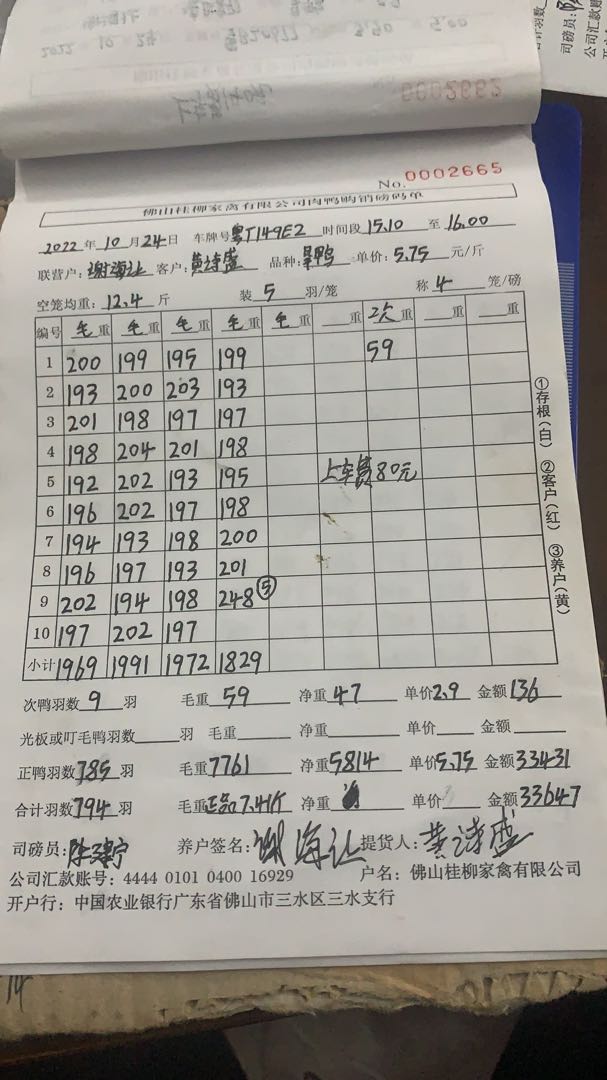 0002662
No. 0002665
佛山桂柳家禽有限公司肉鸭购销磅码单
2022年10月24日 车牌号粤T149E2 时间段15.10至16.00
联营户:谢海让 客户:黄诗盛 品种:旱鸭 单价:5.75元/斤
空笼均重:12.4斤 装5羽/笼 称4笼/磅
编号 毛重 毛重 毛重 毛重 毛重 重 二次重 重 重
1 200 199 195 199 59
2 193 200 203 193
3 201 198 197 197
4 198 204 201 198
5 192 202 193 195 上车费80元
6 196 202 197 198
7 194 193 198 200
8 196 197 193 201
9 202 194 198 248⑤
10 197 202 197
小计 1969 1991 1972 1829
①存根(白) ②客户(红) ③养户(黄)
次鸭羽数9羽 毛重59 净重47 单价2.9 金额136
光板或叮毛鸭羽数 羽 毛重 净重 单价 金额
正鸭羽数785羽 毛重7761 净重5814 单价5.75 金额33431
合计羽数794羽 毛重正品7.41斤 净重 单价 金额33647
司磅员: 养户签名:谢海让 提货人:黄诗盛
公司汇款账号:4444 0101 0400 16929 户名:佛山桂柳家禽有限公司
开户行:中国农业银行广东省佛山市三水区三水支行